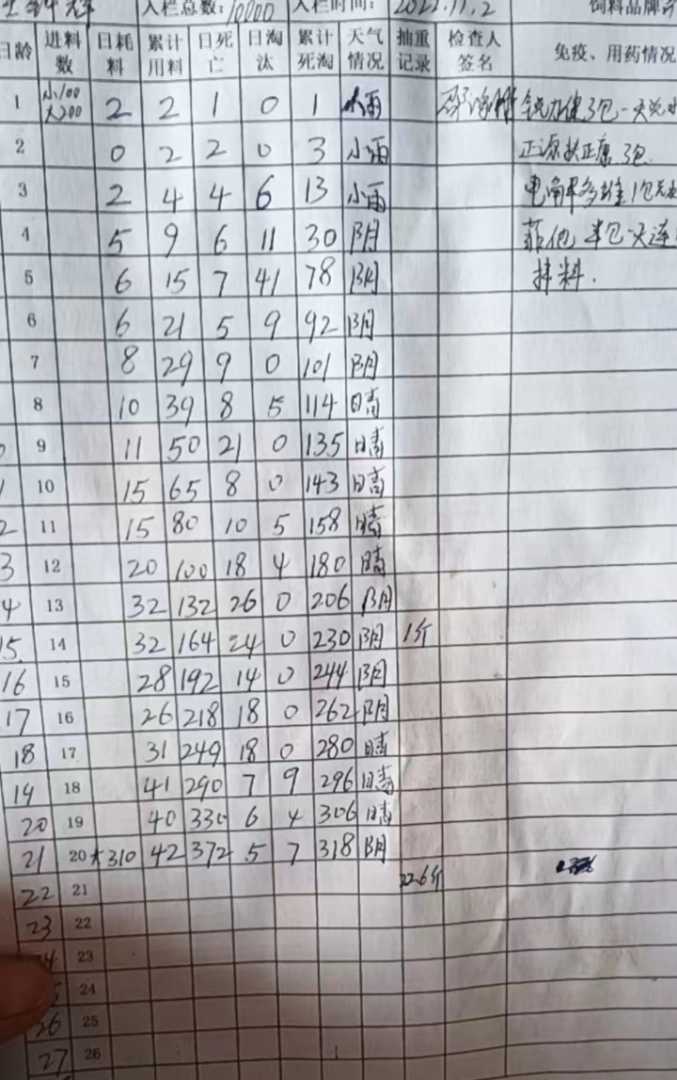 入栏总数: 10000 入栏时间: 2021.11.2 饲料品牌
日龄 进料数 日耗料 累计用料 日死亡 日淘汰 累计死淘 天气情况 抽重记录 检查人签名 免疫、用药情况
1 小100 大200 2 2 1 0 1 小雨
2 0 2 2 0 3 小雨
3 2 4 4 6 13 小雨
4 5 9 6 11 30 阴
5 6 15 7 41 78 阴 拌料.
6 6 21 5 9 92 阴
7 8 29 9 0 101 阴
8 10 39 8 5 114 晴
9 11 50 21 0 135 晴
10 15 65 8 0 143 晴
2 11 15 80 10 5 158 晴
3 12 20 100 18 4 180 晴
4 13 32 132 26 0 206 阴
15 14 32 164 24 0 230 阴 1斤
16 15 28 192 14 0 244 阴
17 16 26 218 18 0 262 阴
18 17 31 249 18 0 280 晴
19 18 41 290 7 9 296 晴
20 19 40 330 6 4 306 晴
21 20 大310 42 372 5 7 318 阴
22 21 22.6斤
23 22
23
24
26 25
27 26